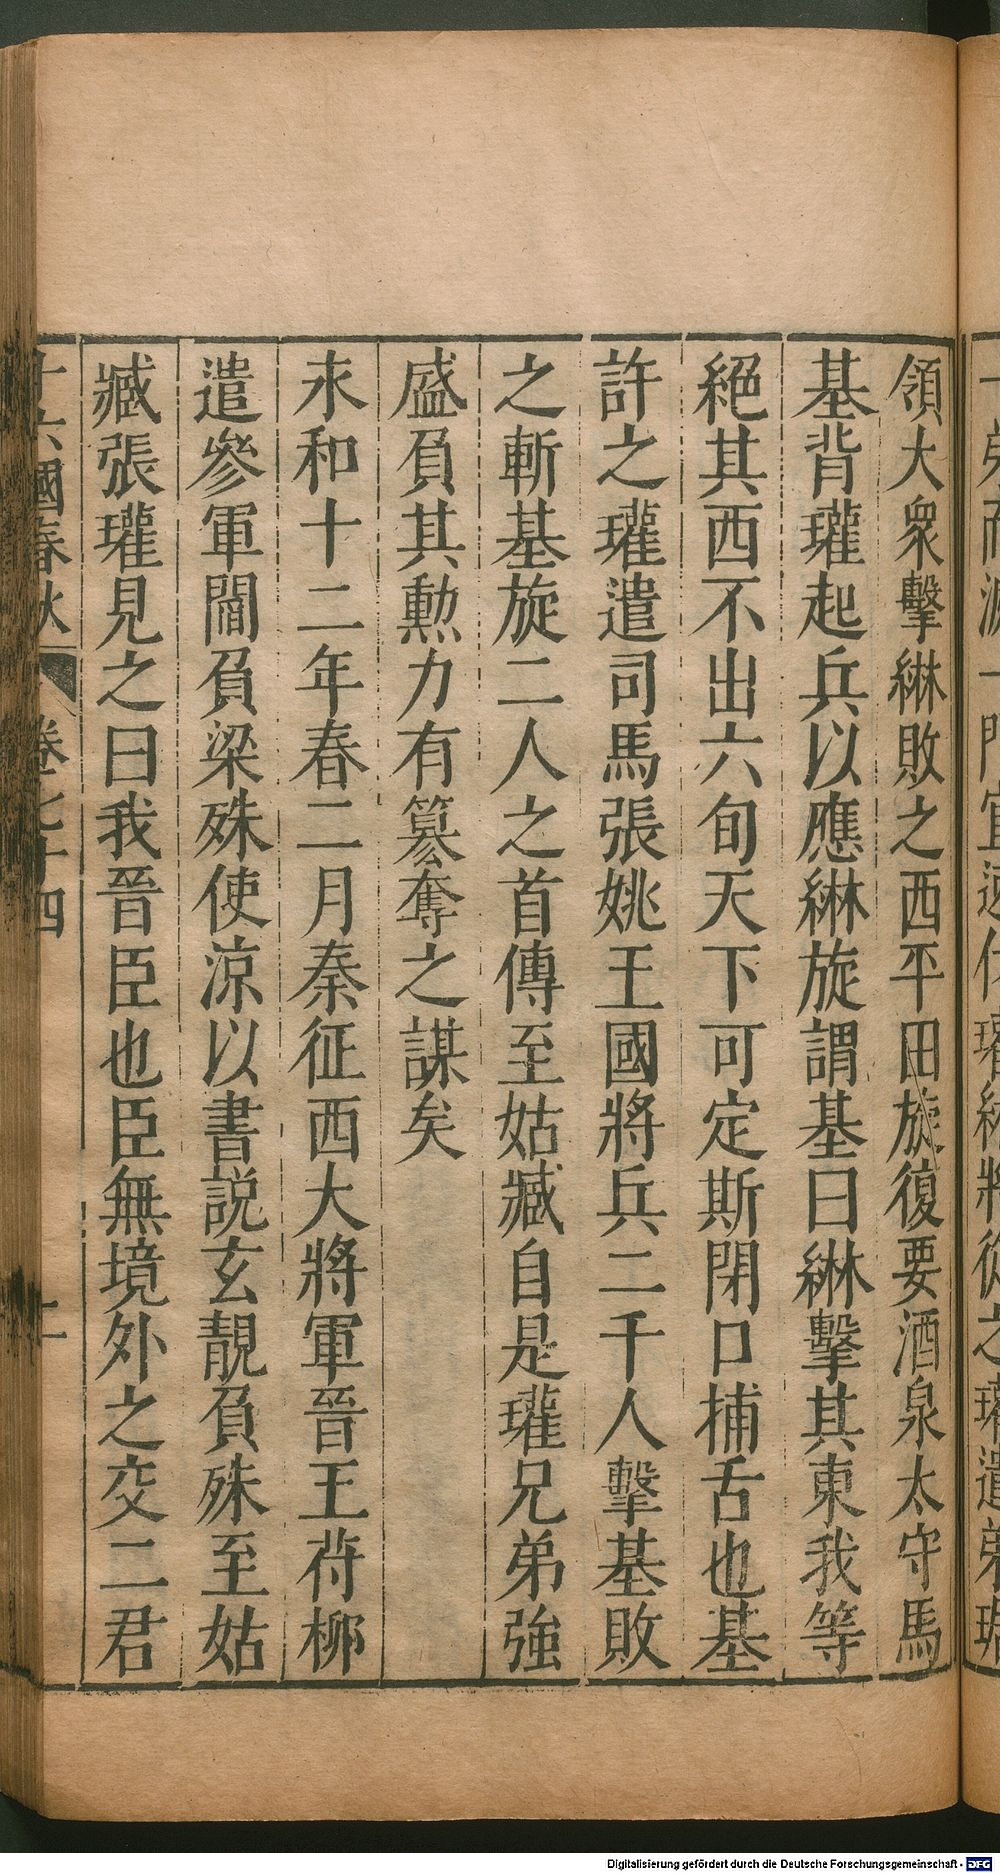 領大衆擊綝敗之西平田旋復要酒泉太守馬
基背瓘起兵以應綝旋謂基曰綝擊其東我等
絕其西不出六旬天下可定斯閉口捕舌也基
許之瓘遣司馬張姚王國將兵二千人擊基敗
之斬基旋二人之首傳至姑臧自是瓘兄弟強
盛負其勲力有簒奪之謀矣
永和十二年春二月秦征西大將軍晉王苻桺
遣參軍閻負梁殊使涼以書説玄靚負殊至姑
臧張瓘見之曰我晉臣也臣無境外之交二君
十六國春秋 卷七十四
Digitalisierung gefördert durch die Deutsche Forschungsgemeinschaft - DFG